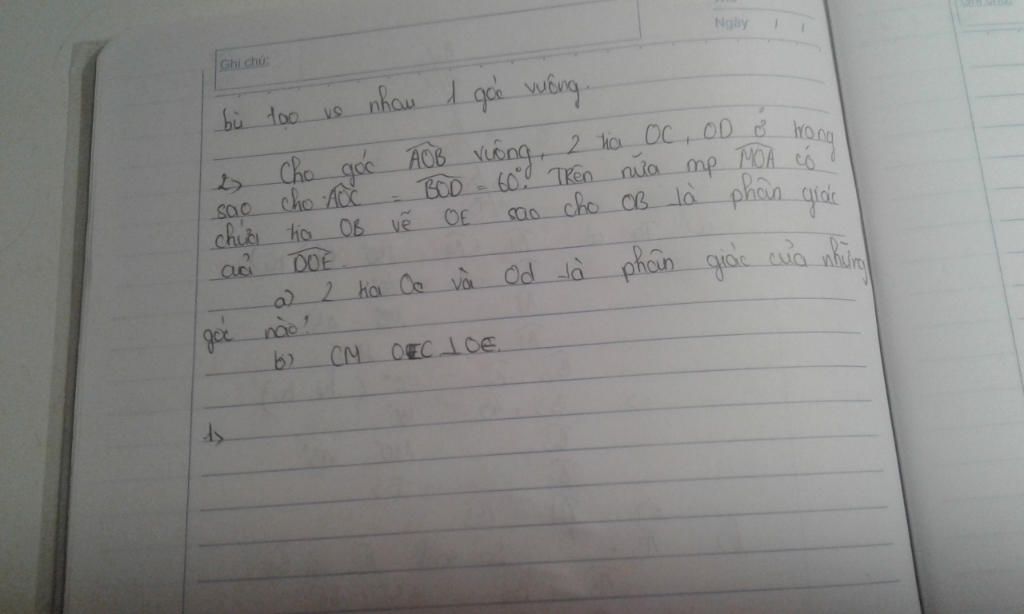 Ngày / /
Ghi chú:
bù tạo vs nhau 1 góc vuông.
2> Cho góc AOB vuông, 2 tia OC, OD ở trong
sao cho AOC = BOD = 60°. Trên nửa mp MOA có
chứa tia OB vẽ OE sao cho OB là phân giác
của DOE.
a) 2 tia Oc và Od là phân giác của những
góc nào?
b) CM OC ⊥ OE.
1>